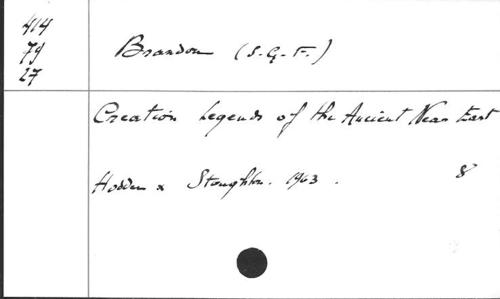 414
79
27
Brandon (S.G.F.)
Creation Legends of the Ancient Near East
Hodder & Stoughton. 1963. 8